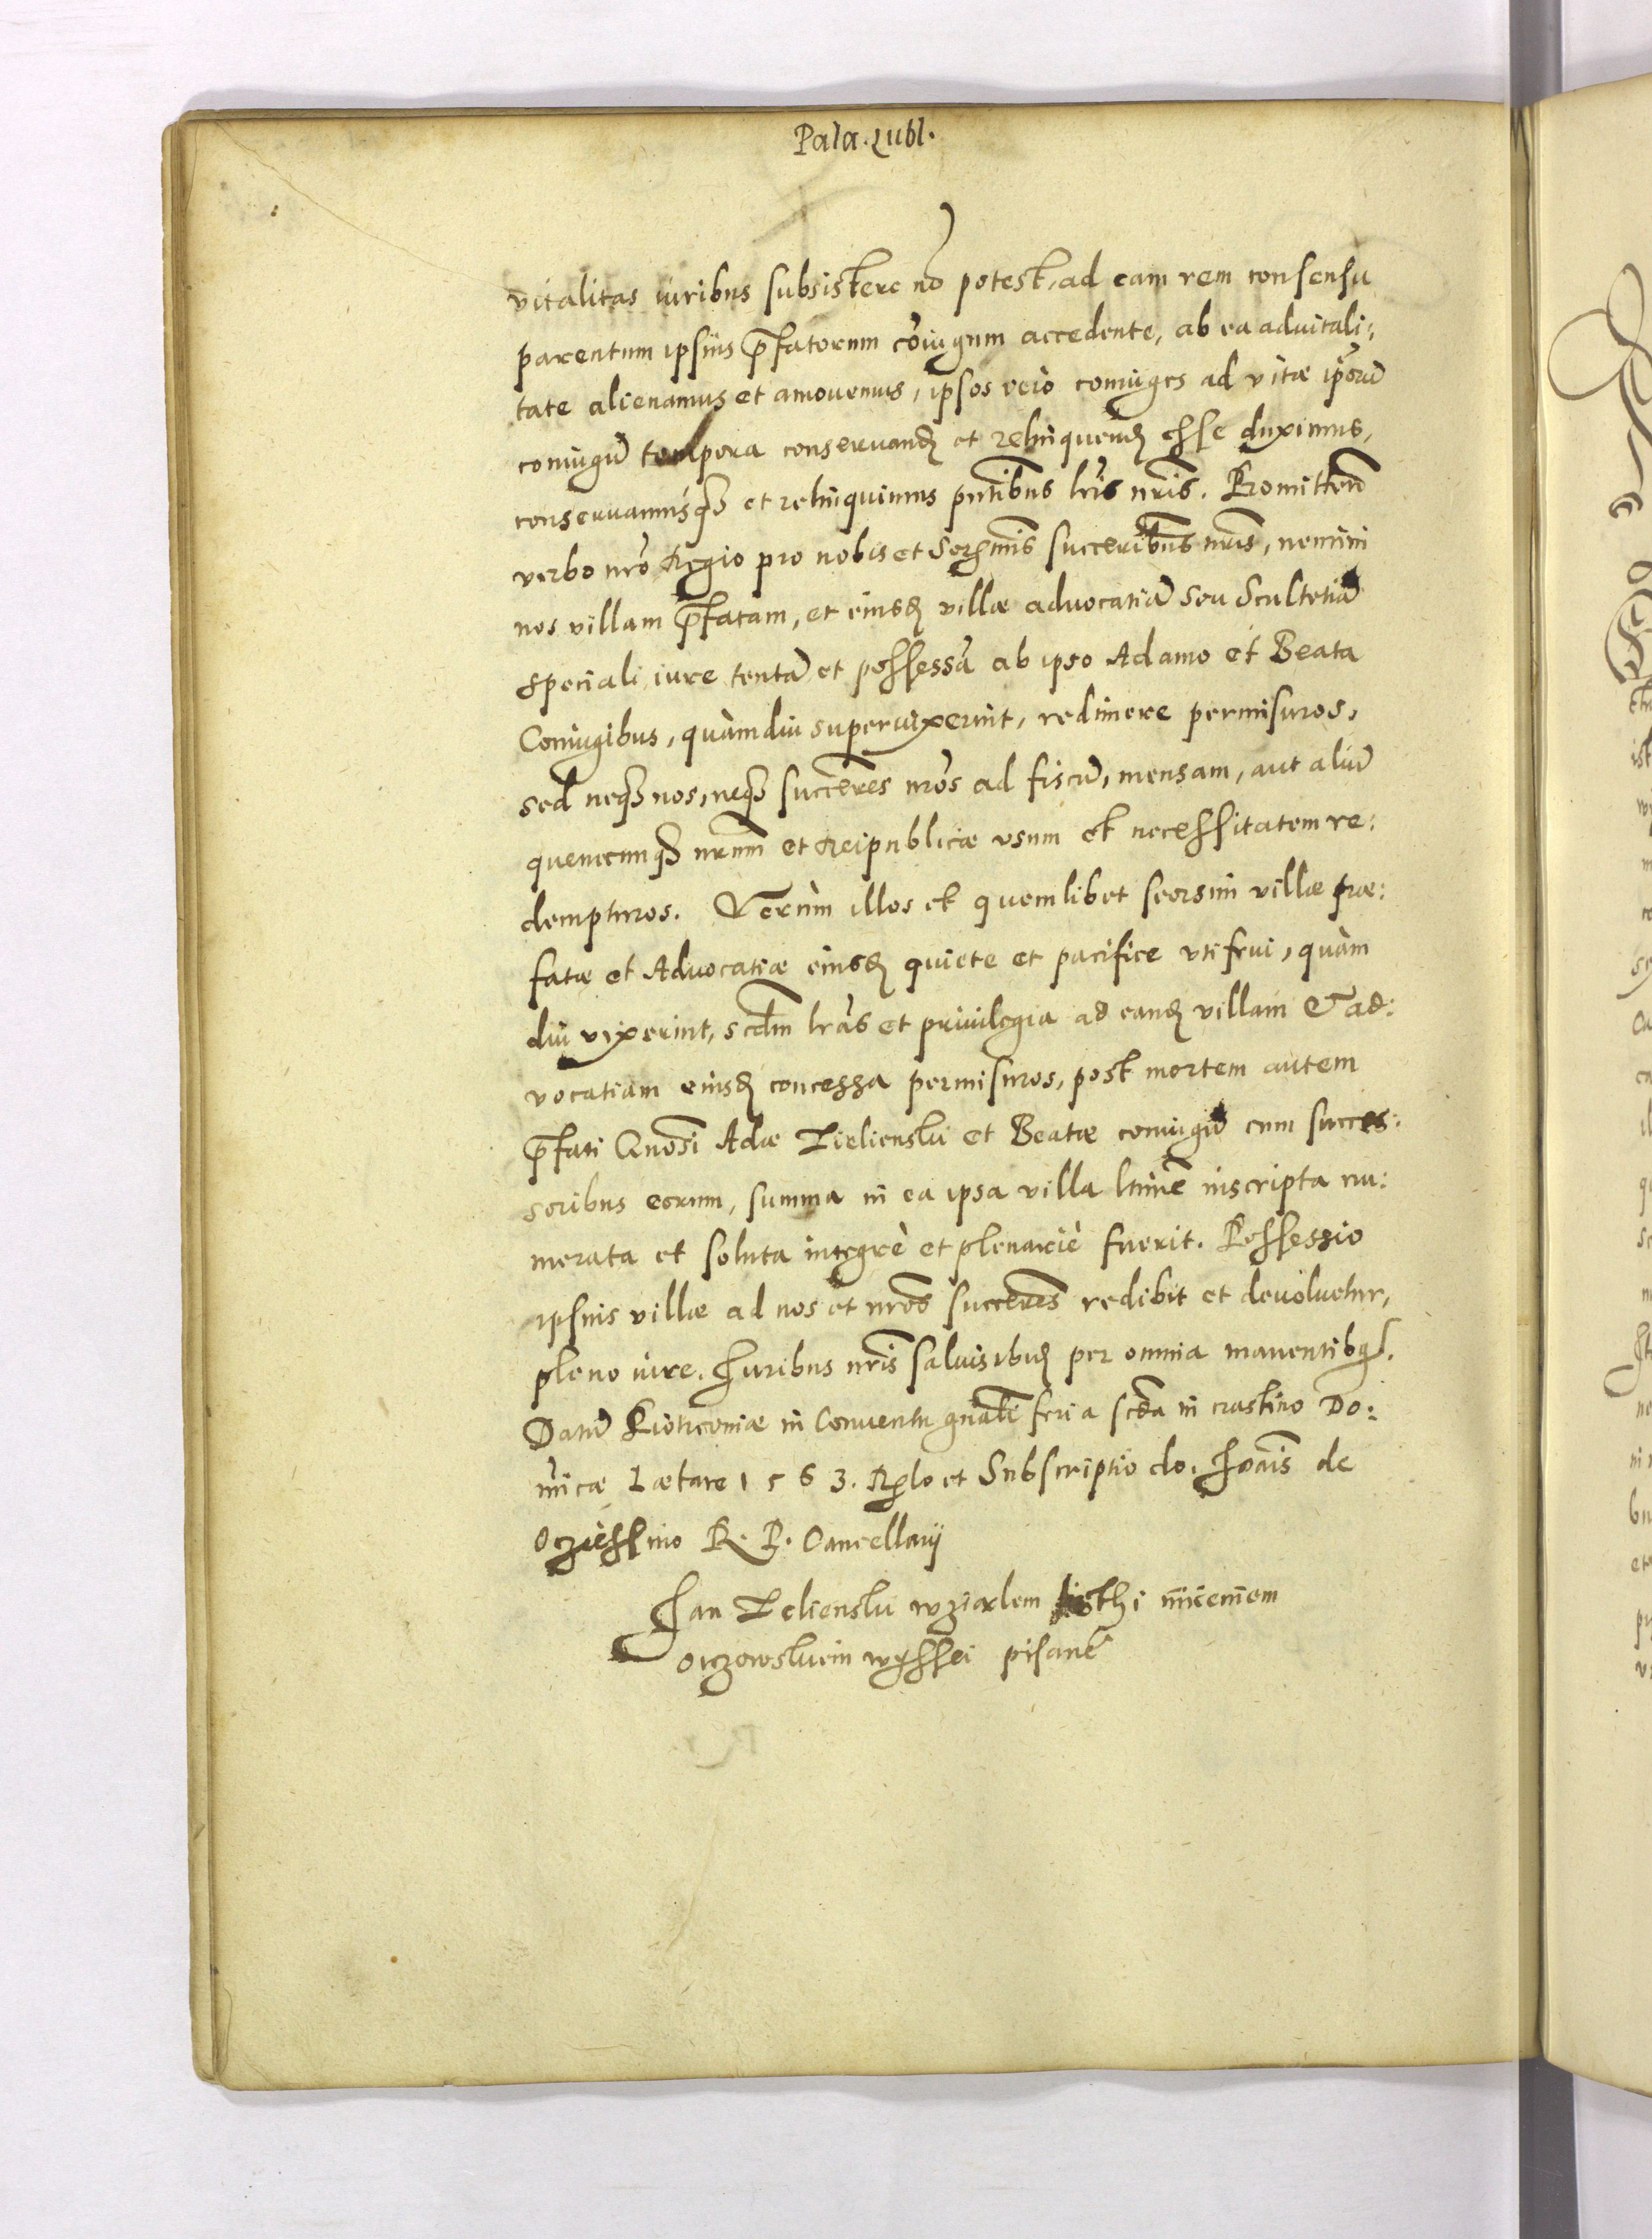 Pala. Lubl.
vitalitas iuribus subsistere nō potest, ad eam rem consensu
parentum ipsius p̄fatorum cōiugum accedente, ab ea aduitali:
tate alienamus et amouemus, ipsos vero coniuges ad vitæ ip̄orū
coniugū tempora conseruand et relinquend esse duximus,
conseruamusq3 et relinquimus pn̄tibus lr̄is nr̄is. Promitten̄
verbo nr̄o Regio pro nobis et Ser̄mis succerib̄us nr̄is, nemini
nos villam p̄fatam, et eiusd villæ aduocatiā seu Scultetiā
speciali iure tentā et possessā ab ipso Adamo et Beata
Coniugibus, quàmdiu superuixerint, redimere permisuros,
sed neq3 nos, neq3 succeres nr̄os ad fiscū, mensam, aut aliū
quemcunq3 nr̄um et Reipublicæ vsum et necessitatem re:
dempturos. Verùm illos et quemlibet seorsim villæ præ:
fatæ et Aduocatiæ eiusd quiete et pacifice vti frui, quàm
diu vixerint, scd̄m lr̄as et priuilegia ad eand villam et ad:
vocatiam eiusd concessa permisuros, post mortem autem
p̄fati Gn̄osi Adæ Zielienski et Beatæ coniugū cum succes:
soribus eorum, summa in ea ipsa villa ltime inscripta nu:
merata et soluta integrè et plenariè fuerit. Possessio
ipsius villæ ad nos et nr̄os succeres redibit et deuoluetur,
pleno iure. Iuribus nr̄is saluis ibid per omnia manentibq3.
Datū Piotrcouiæ in Conuentu gn̄ali feria scda in crastino Do:
minicæ Lætare 1563. Relo et Subscriptio do. Ioānis de
Oczieslino R. P. Cancellarij
Jan Zelienski wzialem listhi
wyssei pisane